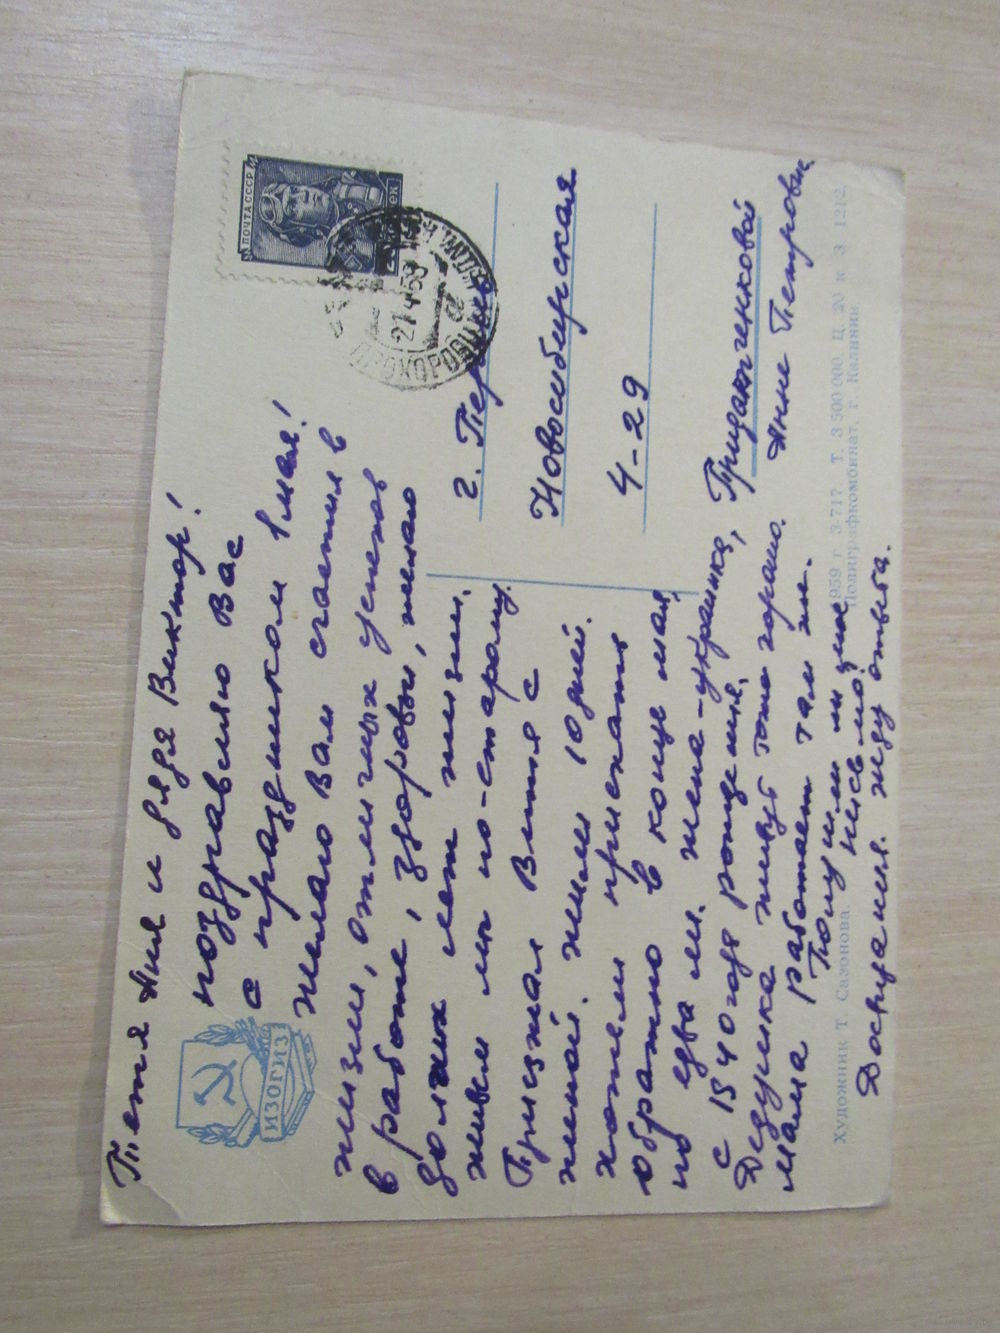 Тетя Аня и дядя Виктор!
поздравляю Вас
с праздником 1 мая!
Желаю Вам счастья в
жизни, отличных успехов
в работе, здоровья, желаю
долгих лет жизни.
живем мы по-старому.
Приезжал Витя с
женой. жили 10 дней.
хотели приехать
обратно в конце мая,
но едва ли. жена-украинка,
с 1940 года рождения.
Дедушка живут тоже хорошо.
Мама работает там же.
Получили ли
письмо?
Досвидания. жду ответа.
ИЗОГИЗ
ПОЧТА СССР
ПРОХОРОВКА
г. Пермь
Новосибирская
4-29
Анне Петровне
Художник Т. Сазонова.
1959 г. З-717. Т. 3 500 000. Ц. 20 к. З. 1212.
Полиграфкомбинат, г. Калинин